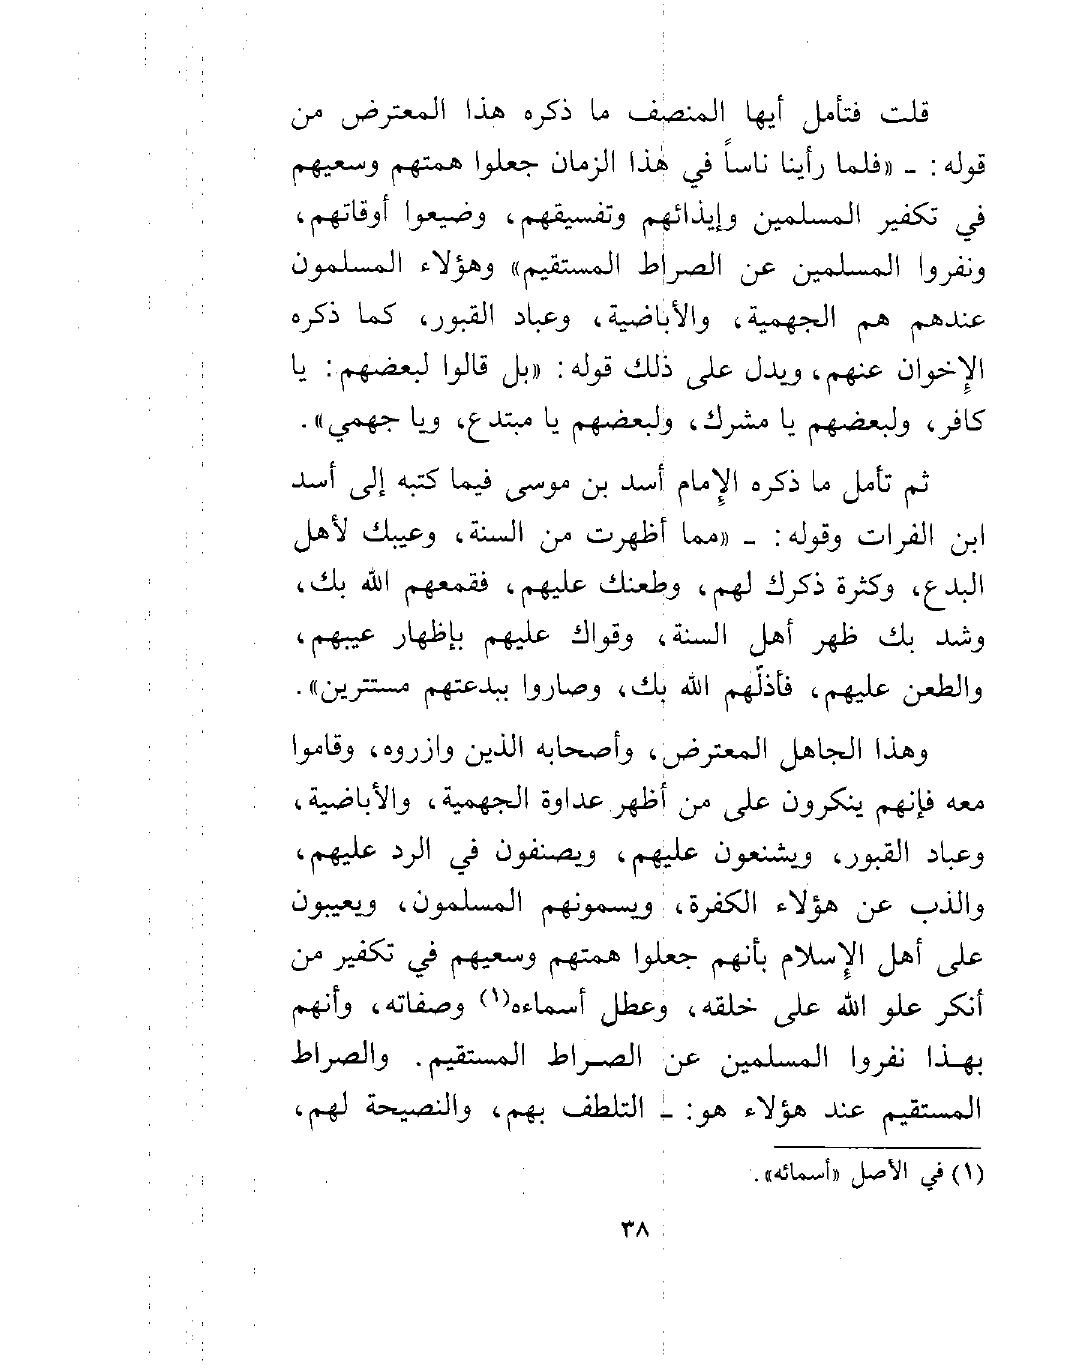 قلت فتأمل أيها المنصف ما ذكره هذا المعترض من
قوله: ـ «فلما رأينا ناساً في هذا الزمان جعلوا همتهم وسعيهم
في تكفير المسلمين وإيذائهم وتفسيقهم، وضيعوا أوقاتهم،
ونفروا المسلمين عن الصراط المستقيم» وهؤلاء المسلمون
عندهم هم الجهمية، والأباضية، وعباد القبور، كما ذكره
الإخوان عنهم، ويدل على ذلك قوله: «بل قالوا لبعضهم: يا
كافر، ولبعضهم يا مشرك، ولبعضهم يا مبتدع، ويا جهمي».
ثم تأمل ما ذكره الإمام أسد بن موسى فيما كتبه إلى أسد
ابن الفرات وقوله: ـ «مما أظهرت من السنة، وعيبك لأهل
البدع، وكثرة ذكرك لهم، وطعنك عليهم، فقمعهم الله بك،
وشد بك ظهر أهل السنة، وقواك عليهم بإظهار عيبهم،
والطعن عليهم، فأذلّهم الله بك، وصاروا ببدعتهم مستترين».
وهذا الجاهل المعترض، وأصحابه الذين وازروه، وقاموا
معه فإنهم ينكرون على من أظهر عداوة الجهمية، والأباضية،
وعباد القبور، ويشنعون عليهم، ويصنفون في الرد عليهم،
والذب عن هؤلاء الكفرة، ويسمونهم المسلمون، ويعيبون
على أهل الإسلام بأنهم جعلوا همتهم وسعيهم في تكفير من
أنكر علو الله على خلقه، وعطل أسماءه(١) وصفاته، وأنهم
بهذا نفروا المسلمين عن الصراط المستقيم. والصراط
المستقيم عند هؤلاء هو: ـ التلطف بهم، والنصيحة لهم،
(١) في الأصل «أسمائه».
٣٨